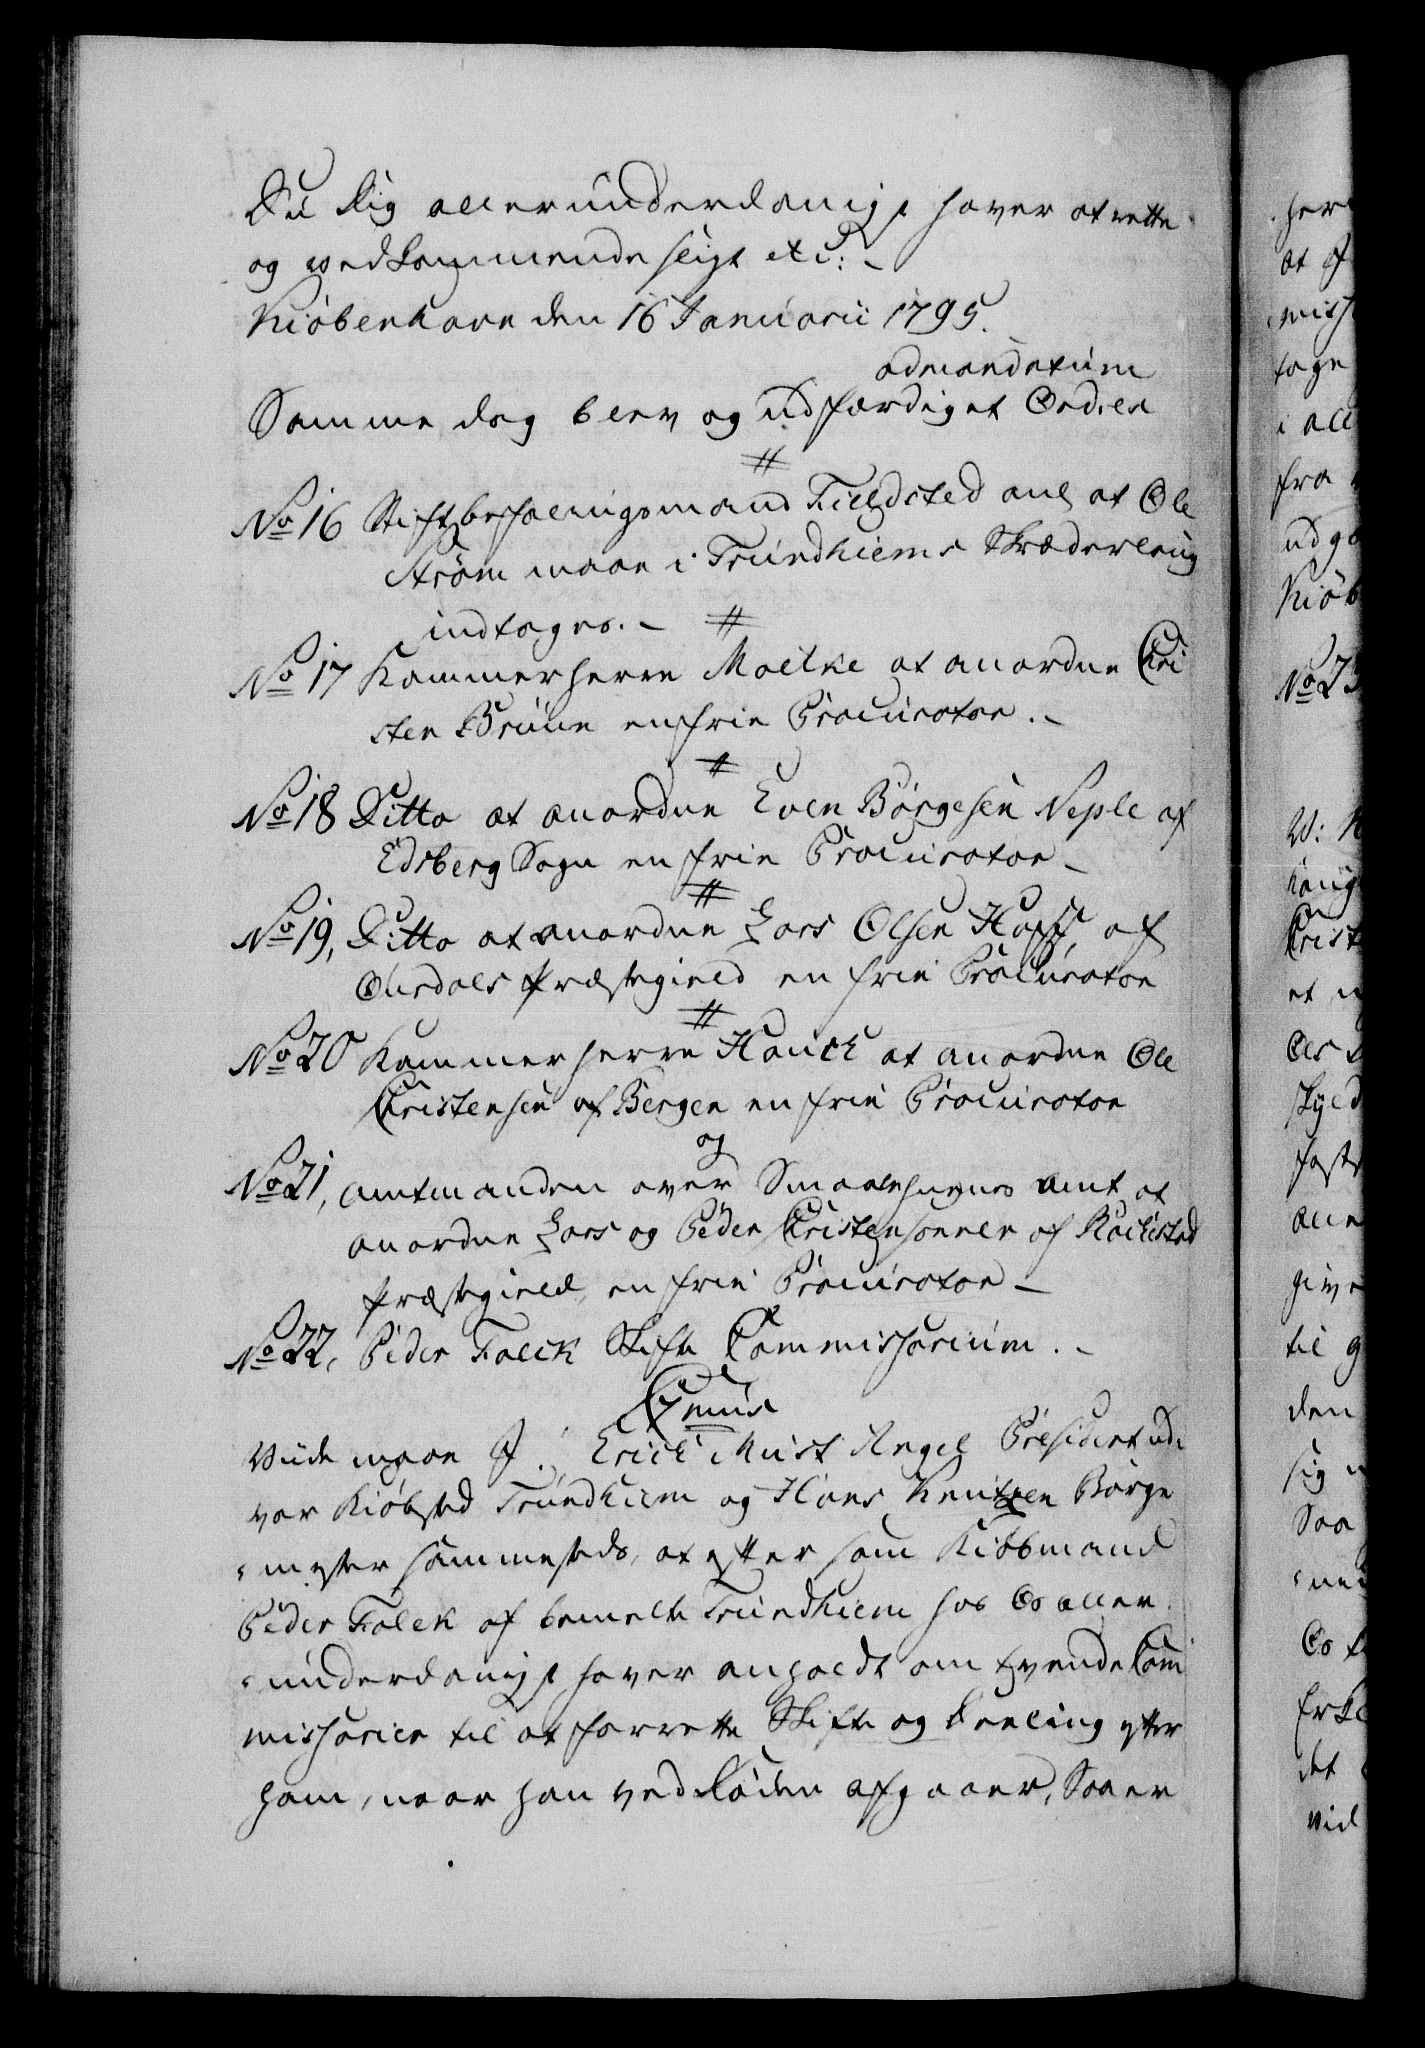 Du Dig allerunderdanigst haver at rette
og vedkommende sligt etc: –
Kiöbenhavn den 16 Januarii 1795.
ad mandatum
Samme dag blev og udfærdiget Ordres
#
No 16 Stiftbefalingsmand Fieldsted anl at Ole
Ström maae i Trundhiems Skræderlaug
indtages. – #
No 17 Kammerherre Moltke at anordne Chri
sten Bruun en frie Procurator. –
#
No 18 Ditto at anordne Even Börgesen Neple af
Edsberg Sogn en frie Procurator –
#
No 19, Ditto at anordne Lars Olsen Hoff af
Ourdals Præstegield en frie Procurator
#
No 20 Kammerherre Hauch at anordne Ole
Christensen af Bergen en frie Procurator
og
No 21, Amtmanden over Smaalehnenes Amt at
anordne Lars og Peder Christensönner af Rackestad
Præstegield, en frie Procurator –
No 22, Peder Falck Skifte Commissarium. –
C 7mus
Viide maae I. Erich Must Angel Præsident udi
vor Kiöbsted Trundhiem og Hans Knudsen Borge
mester sammesteds, at efter som Kiöbmand
Peder Falck af bemelte Trundhiem hos Os aller
underdanigst haver anholdt om tvende Com
missarier til at forrette Skifte og Deeling efter
ham, naar han ved Döden afgaaer, Saa er
No 23